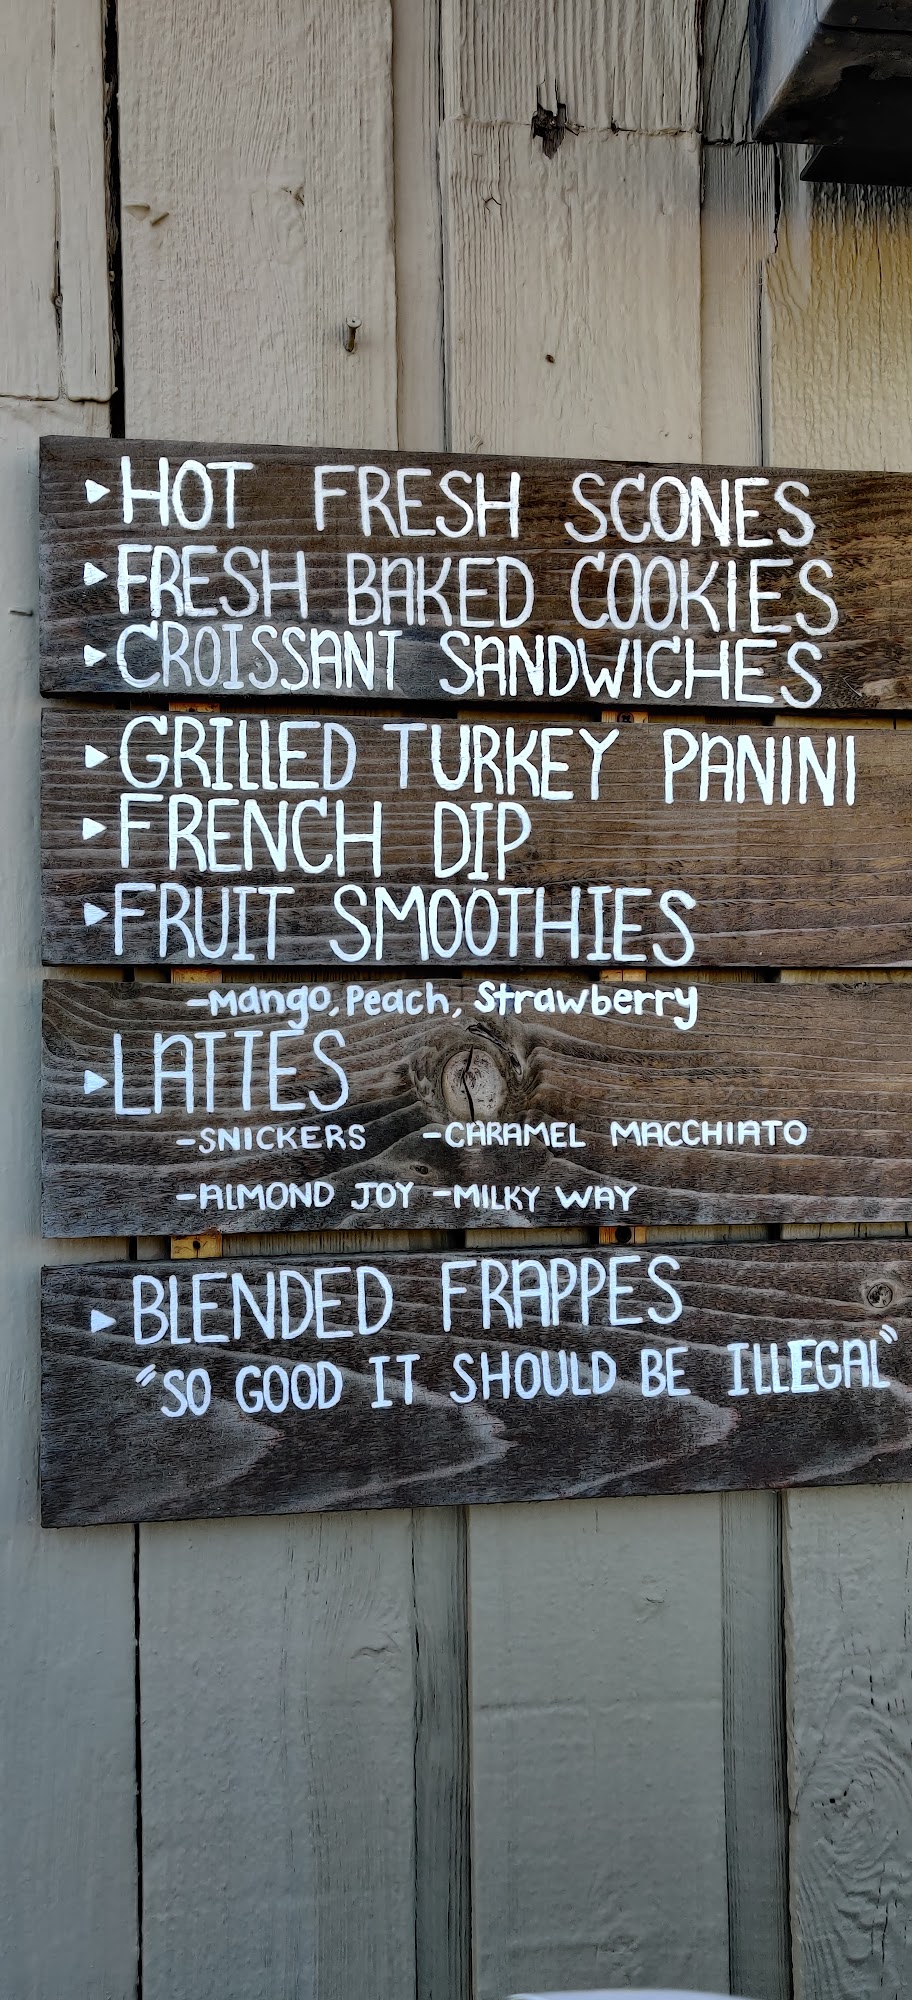 ▸HOT FRESH SCONES
▸FRESH BAKED COOKIES
▸CROISSANT SANDWICHES
▸GRILLED TURKEY PANINI
▸FRENCH DIP
▸FRUIT SMOOTHIES
-Mango, Peach, Strawberry
▸LATTES
-SNICKERS -CARAMEL MACCHIATO
-ALMOND JOY -MILKY WAY
▸BLENDED FRAPPES
"SO GOOD IT SHOULD BE ILLEGAL"